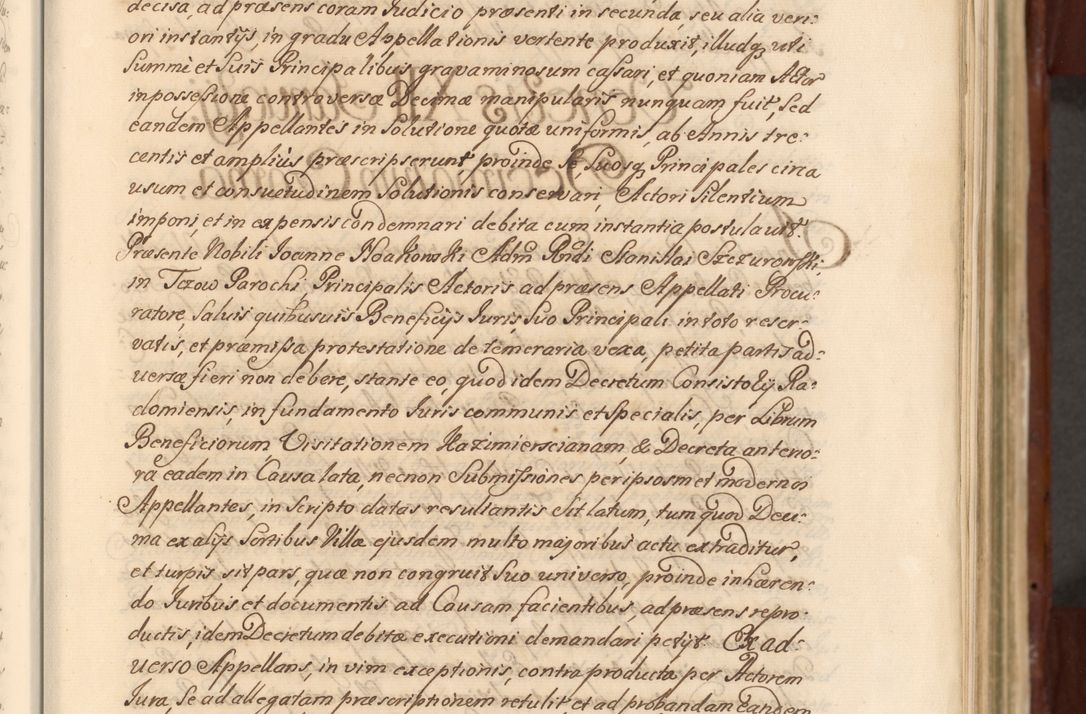 decisa, ad præsens coram Judicio præsenti in secunda seu alia veri:
ori instantijs, in gradu Appellationis vertente produxit, illudq, uti
Summé et Suis Principalibus gravaminosum cassari, et quoniam Actor
in possessione controversæ Decimæ manipularis nunquam fuit, Sed
eandem Appellantes in Solutione quotæ uniformis, ab Annis tre:
centis et amplius præscripserunt proinde Se, Suosq, Principales circa
usum et consuetudinem Solutionis conservari, Actori Silentium
imponi, et in expensis condemnari debita cum instantia postulavit.
Præsente Nobili Joanne Noakowski Adm Rndi Stanislai Szczurowski,
in Tczow Parochi Principalis Actoris ad præsens Appellati Procu:
ratore, Salvis quibusvis Beneficijs Juris, Suo Principali in toto reser:
vatis, et præmissa protestatione de temeraria vexa, petita partis ad:
versæ fieri non debere, stante eo, quod idem Decretum Consistorij Ra:
domiensis, in fundamento Juris communis et specialis, per Librum
Beneficiorum, Visitationem Kazimierscianam, & Decreta anterio:
ra eadem in Causa lata, necnon Submissiones per ipsosmet modernos
Appellantes, in Scripto datas resultantis Sit latum, tum quod Deci:
ma ex alijs Sortibus Villæ ejusdem multo majoribus actu extraditur,
et turpis sit pars, quæ non congruit Suo universo, proinde inhæren:
do Juribus et documentis ad Causam facientibus, ad præsens repro:
ductis, idem Decretum debitæ executioni demandari petijt. Ex ad:
verso Appellans, in vim exceptionis, contra producta per Actorem
Jura, Se ad allegatam præscriptionem retulit et ad probandam eandem